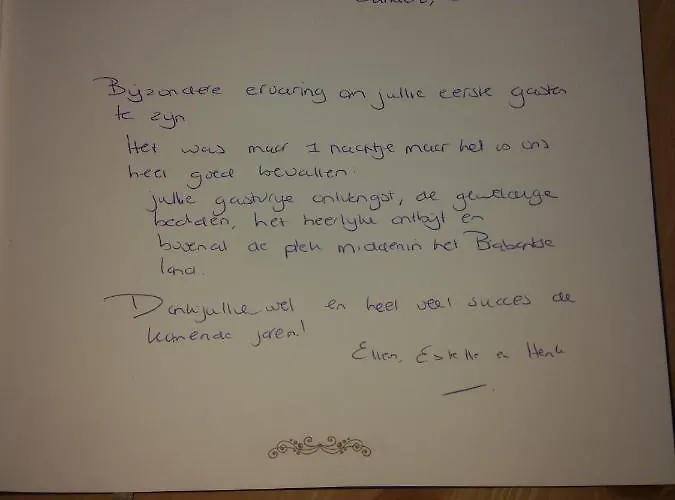 Bijzondere ervaring om jullie eerste gasten
te zijn
Het was maar 1 nachtje maar het is ons
heel goed bevallen.
jullie gastvrije ontvangst, de geweldige
bedden, het heerlijke ontbijt en
bovenal de plek middenin het Brabantse
land.
Dankjullie wel en heel veel succes de
komende jaren!
Ellen, Estelle en Henk